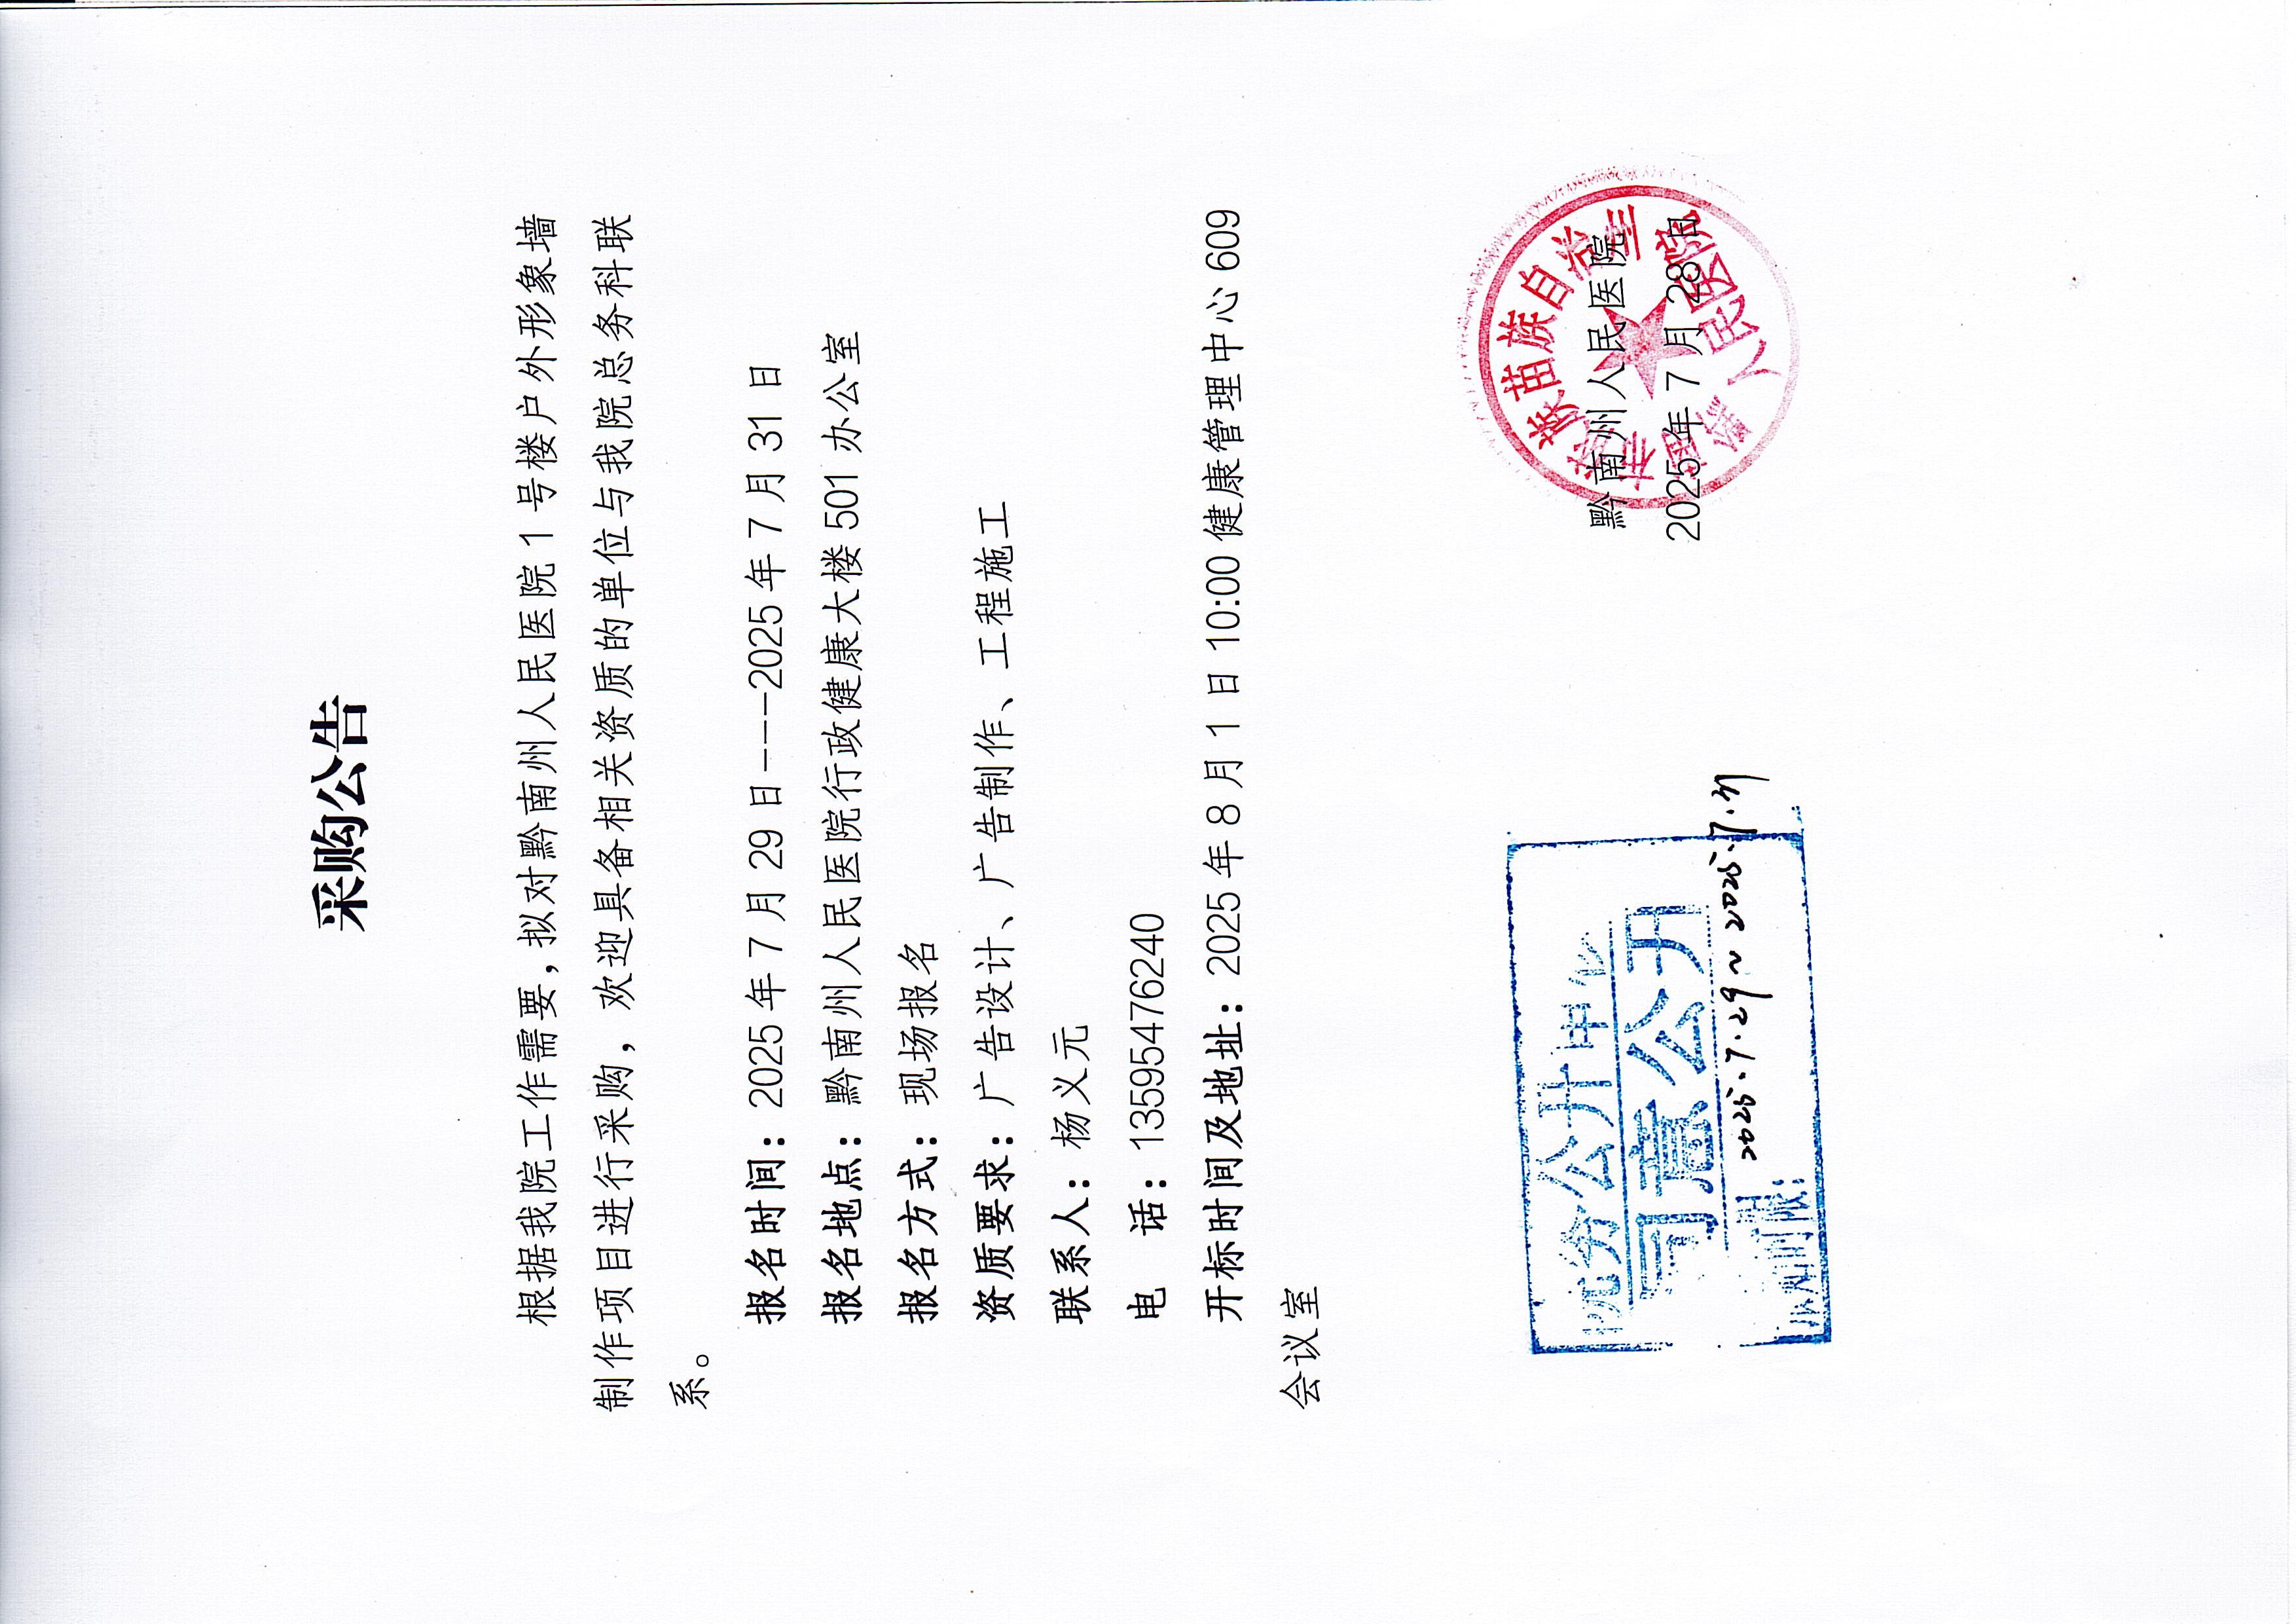 采购公告
根据我院工作需要，拟对黔南州人民医院1号楼户外形象墙
制作项目进行采购，欢迎具备相关资质的单位与我院总务科联
系。
报名时间：2025年7月29日---2025年7月31日
报名地点：黔南州人民医院行政健康大楼501办公室
报名方式：现场报名
资质要求：广告设计、广告制作、工程施工
联系人：杨义元
电 话：13595476240
开标时间及地址：2025年8月1日10:00健康管理中心609
会议室
黔南州人民医院
2025年7月28日
黔南布依族苗族自治州
人民医院
院务公开审核
同意公开
公示时限：
2025.7.29~2025.7.31